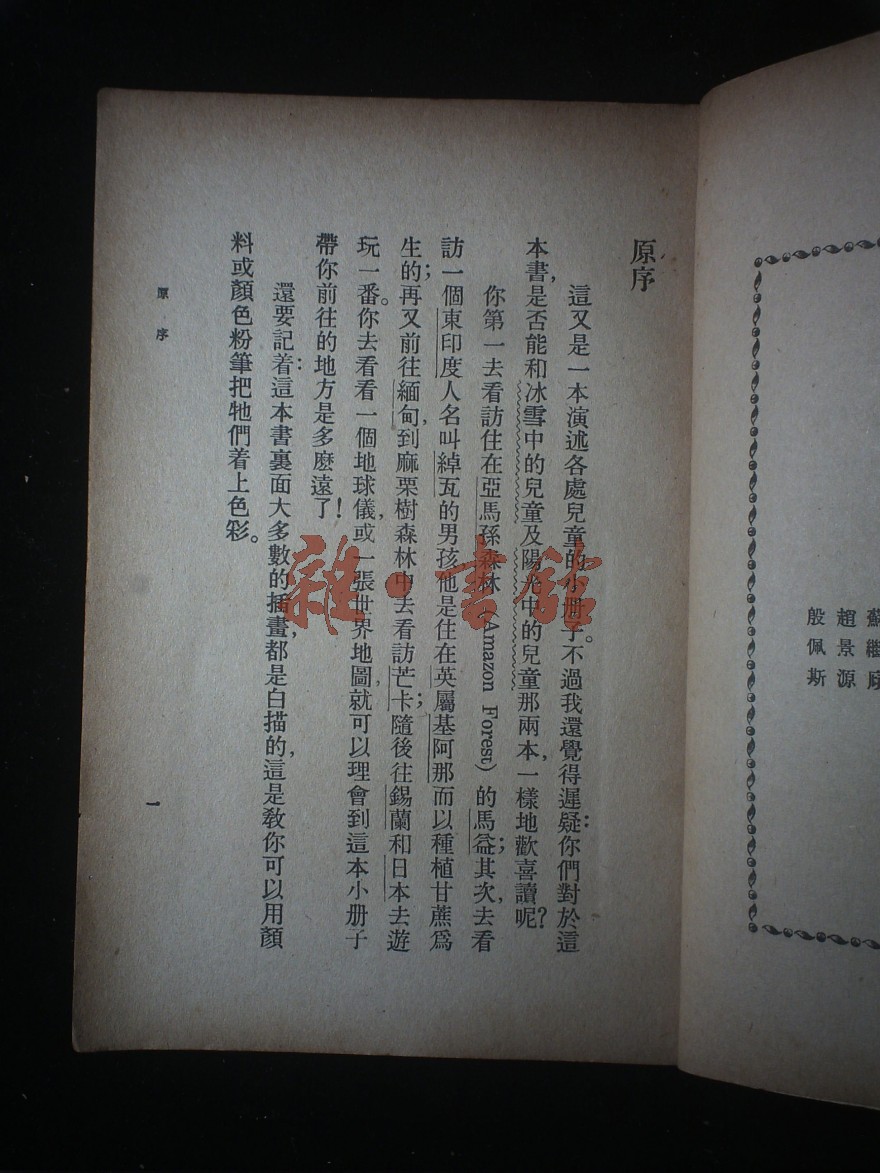 原序
這又是一本演述各處兒童的小册子。不過我還覺得遲疑：你們對於這
本書，是否能和冰雪中的兒童及陽光中的兒童那兩本，一樣地歡喜讀呢？
你第一去看訪住在亞馬孫森林（Amazon Forest）的馬益；其次，去看
訪一個東印度人名叫綽瓦的男孩他是住在英屬基阿那而以種植甘蔗爲
生的；再又前往緬甸，到麻栗樹森林中去看訪芒卡；隨後往錫蘭和日本去遊
玩一番。你去看看一個地球儀，或一張世界地圖，就可以理會到這本小册子
帶你前往的地方是多麼遠了！
還要記着：這本書裏面大多數的插畫，都是白描的，這是敎你可以用顏
料或顏色粉筆把牠們着上色彩。
原序
一
蘇繼
趙景源
殷佩斯
雜·書館